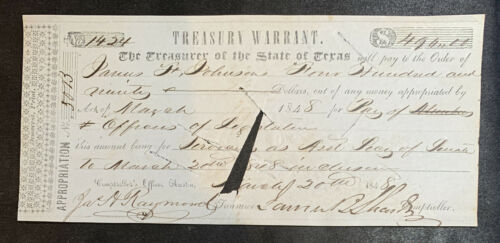 TREASURY WARRANT.
No 1424 $490.00
The Treasurer of the State of Texas will pay to the Order of
James F. Johnson Four Hundred and
ninety Dollars, out of any money appropriated by
Act of March 1848 for Pay of Members
& Officers of Legislature
this amount being for Services as
to March 20th 1848 inclusive
Comptroller's Office, Austin, March 20th 1848
Jas. H. Raymond Treasurer James B. Shaw Comptroller.
APPROPRIATION No.